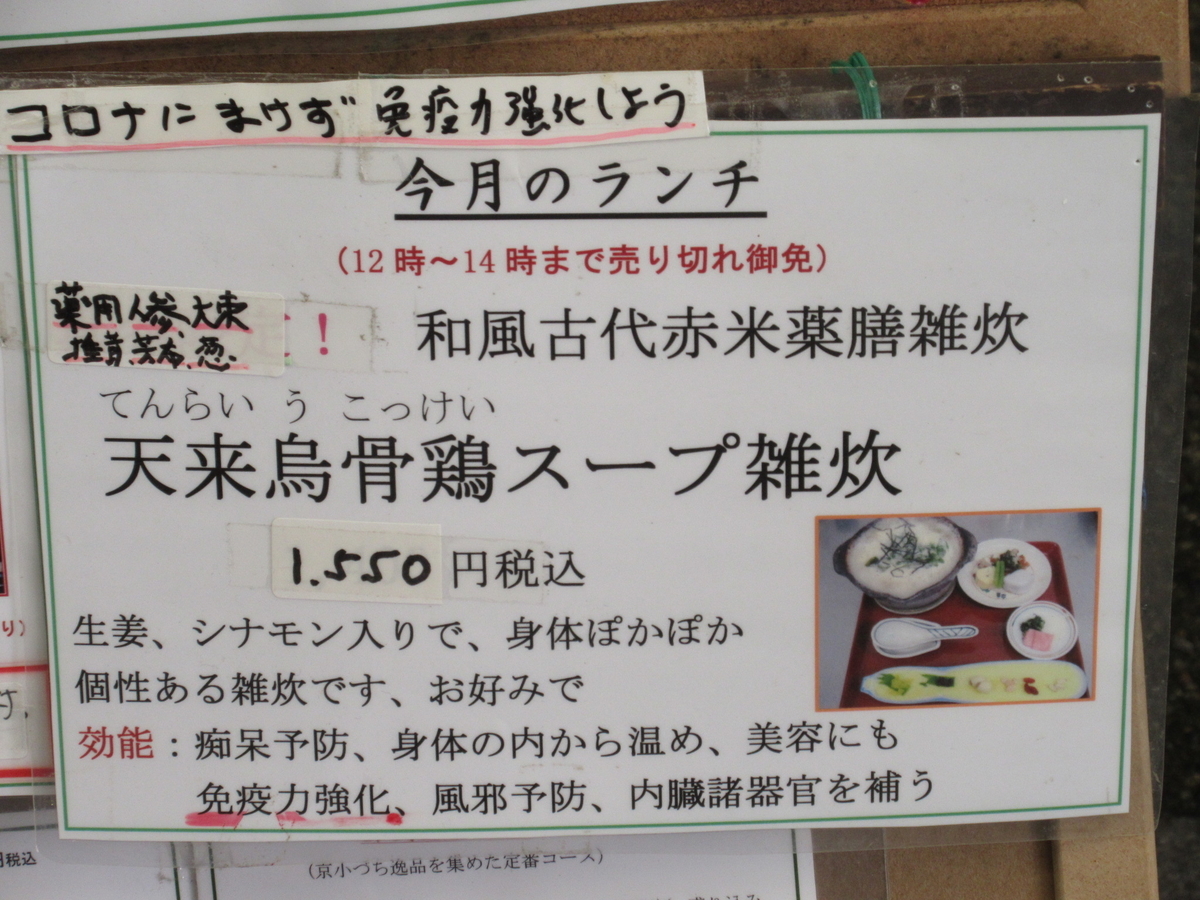 コロナにまけず 免疫力強化しよう
今月のランチ
(12時～14時まで売り切れ御免)
薬用人参、大棗
！
和風古代赤米薬膳雑炊
てんらい う こっけい
天来烏骨鶏スープ雑炊
1.550円税込
生姜、シナモン入りで、身体ぽかぽか
個性ある雑炊です、お好みで
効能：痴呆予防、身体の内から温め、美容にも
免疫力強化、風邪予防、内臓諸器官を補う
り)
円税込
(京小づち逸品を集めた定番コース)